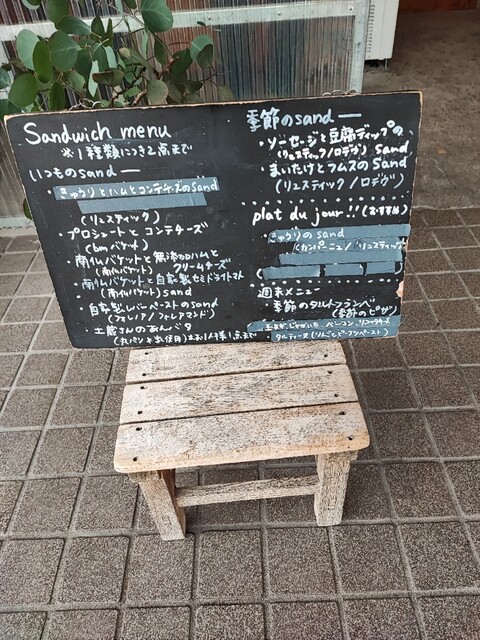 Sandwich menu
※1種類につき2点まで
いつものsand
きゅうりとハムとコンテチーズのsand
(リュスティック)
・プロシュートとコンテチーズ
(bmバゲット)
・南仏バゲットと無添加ハムと
(南仏バゲット) クリームチーズ
・南仏バゲットと自家製セミドライトマト
(南仏バゲット) sand
・自家製レバーペーストのsand
・土蔵さんのあんバタ
季節のsand
・ソーセージと豆腐ディップの
(リュスティック/ロデヴ) sand
・まいたけとフムスのsand
(リュスティック/ロデヴ)
plat du jour!! (おすすめ)
きゅうりのsand
(カンパーニュ/リュスティック
週末メニュー
・季節のタルトフランベ
(季節のピザ)
じゃがいも、ベーコン、
タルティーヌ